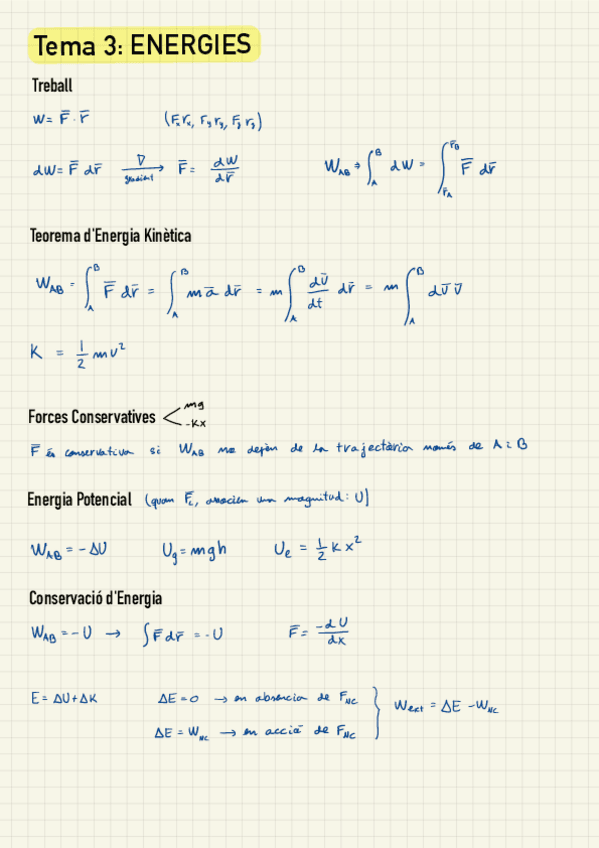 Tema 3: ENERGIES
Treball
W = F̄ · r̄ (Fx rx, Fy ry, Fz rz)
dW = F̄ dr̄ →(∇ gradient) F̄ = dW/dr̄ W_AB → ∫_A^B dW = ∫_{r̄A}^{r̄B} F̄ dr̄
Teorema d'Energia Kinètica
W_AB = ∫_A^B F̄ dr̄ = ∫_A^B m ā dr̄ = m ∫_A^B dv̄/dt dr̄ = m ∫_A^B dv̄ v̄
K = 1/2 m v²
Forces Conservatives < mg
-Kx
F̄ és conservativa si W_AB no depèn de la trajectòria només de A i B
Energia Potencial (quan F̄c, associem una magnitud: U)
W_AB = -ΔU U_g = mgh U_e = 1/2 K x²
Conservació d'Energia
W_AB = -U → ∫ F̄ dr̄ = -U F̄ = -dU/dx
E = ΔU + ΔK ΔE = 0 → en absència de F_NC } W_ext = ΔE - W_NC
ΔE = W_NC → en acció de F_NC